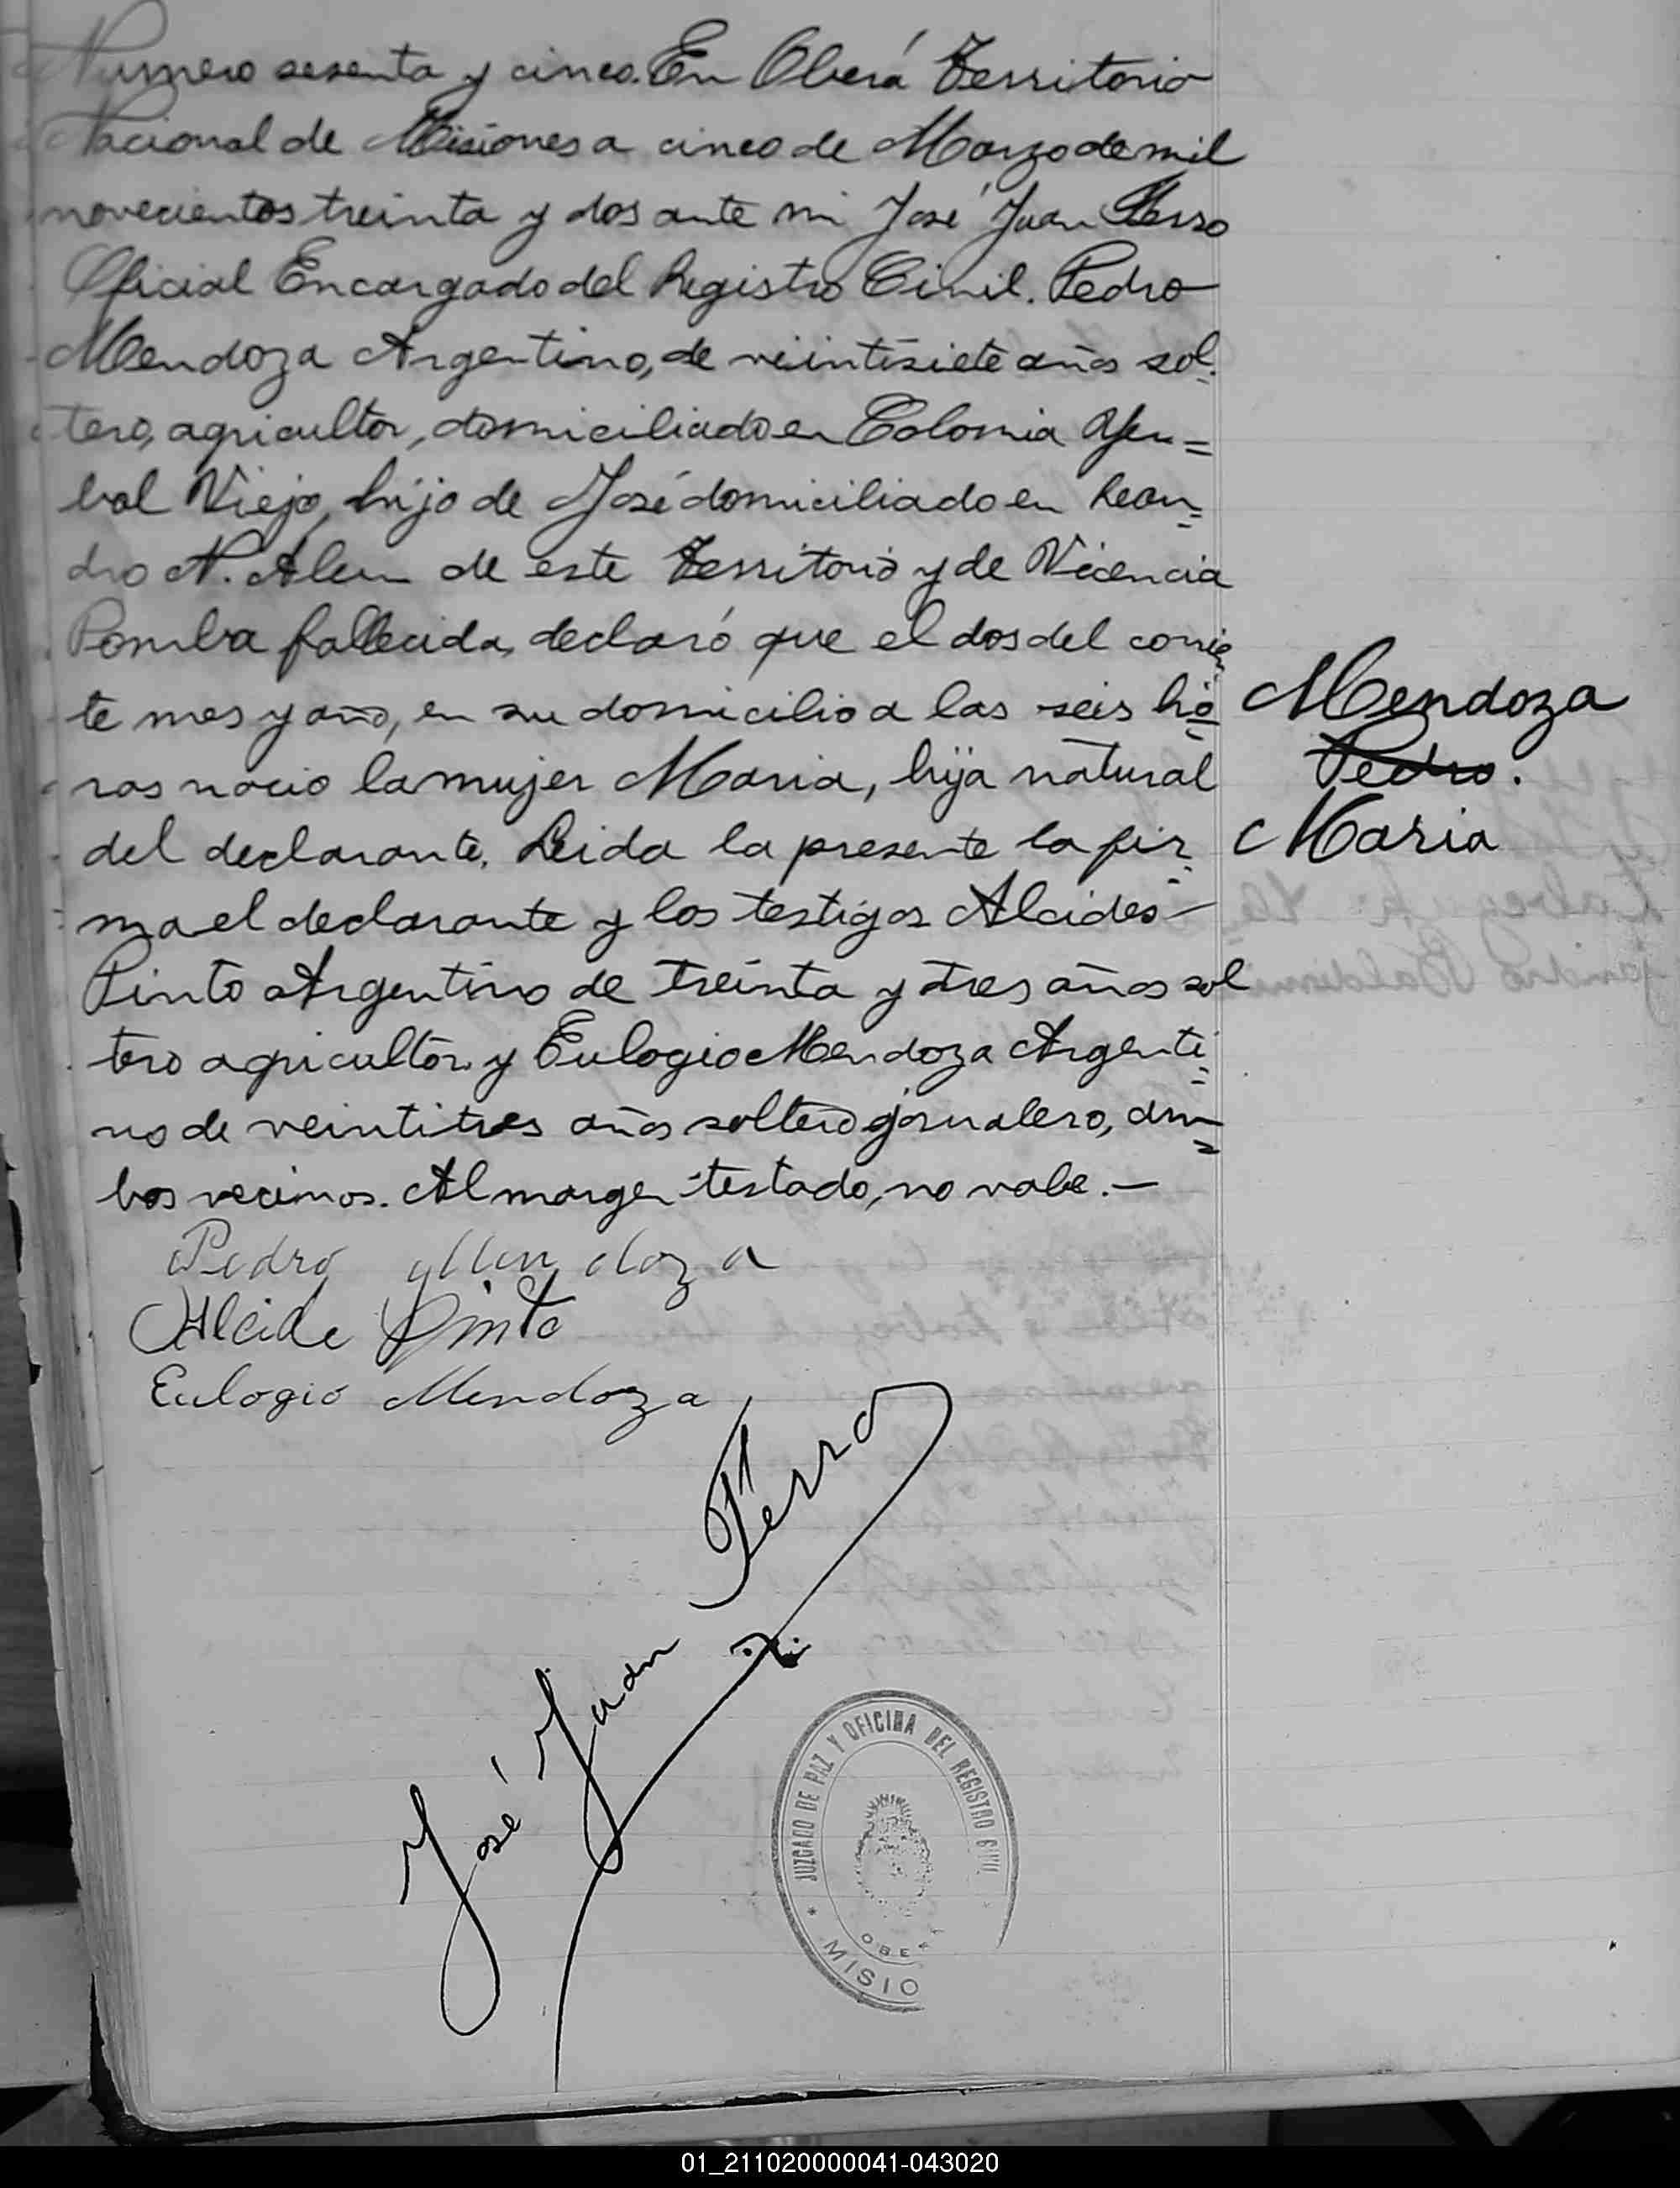 Numero sesenta y cinco. En Oberá Territorio
Nacional de Misiones a cinco de Marzo de mil
novecientos treinta y dos ante mi José Juan Ferro
Oficial Encargado del Registro Civil. Pedro
Mendoza Argentino, de veintisiete años sol-
tero, agricultor, domiciliado en Colonia Yer=
bal Viejo, hijo de José domiciliado en Lean=
dro N. Alem de este Territorio y de Vicencia
Pomba fallecida, declaró que el dos del corrien
te mes y año, en su domicilio a las seis ho=
ras nacio la mujer Maria, hija natural
del declarante. Leida la presente la fir=
ma el declarante y los testigos Alcides
Pinto Argentino de treinta y tres años sol
tero agricultor y Eulogio Mendoza Argenti=
no de veintitres años soltero jornalero, am=
bos vecinos. Al margen testado, no vale.—
Mendoza
Pedro.
Maria
Pedro Mendoza
Alcide Pinto
Eulogio Mendoza
José Juan Ferro
JUZGADO DE PAZ Y OFICINA DEL REGISTRO CIVIL
OBERA
MISIO
01_211020000041-043020